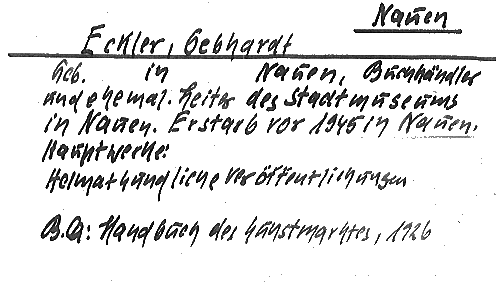 Nauen
Eckler, Gebhardt
Geb. in Nauen, Buchhändler
und ehemal. Leiter des Stadtmuseums
in Nauen. Er starb vor 1945 in Nauen.
Hauptwerke:
Heimatkundliche Veröffentlichungen
B.Q.: Handbuch des Kunstmarktes, 1926